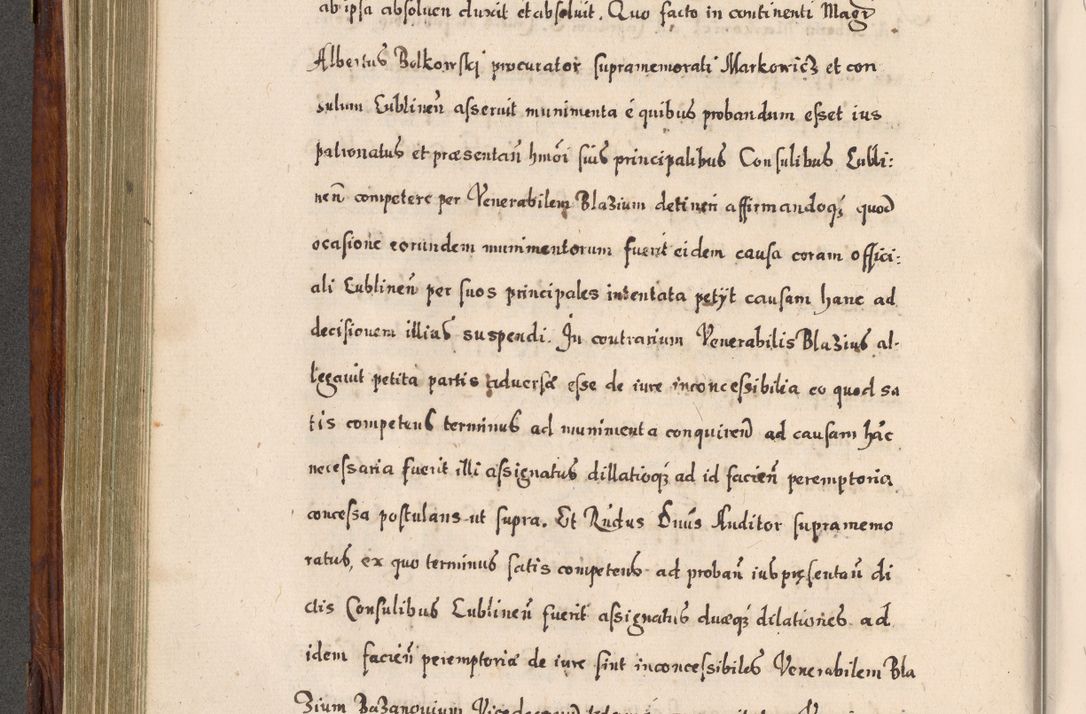 ab ipsa absolven duxit et absolvit. Quo facto in continenti Magr
Albertus Bolkowski procurator supramemorati Markowicz et con
sulum Lublineñ asseruit munimenta e quibus probandum esset ius
patronatus et præsentañ hmõi suis principalibus Consulibus Lubli:
neñ competere per Venerabilem Blazium detineri affirmandoqȝ quod
ocasione eorundem munimentorum fuerit eidem causa coram offici:
ali Lublineñ per suos principales intentata petÿt causam hanc ad
decisionem illius suspendi. In contrarium Venerabilis Blazius al-
legavit petita partis adversæ esse de iure inconcessibilia eo quod sa
tis competens terminus ad munimenta conquirend ad causam hãc
necessaria fuerit illi assignatus dillatioqȝ ad id facieñ peremptoria
concessa postulans ut supra. Et Rñdus Dnus Auditor supramemo
ratus, ex quo terminus satis competens ad probañ ius pręsentañ di
ctis Consulibus Lublineñ fuerit assignatus duæqȝ dilationes ad
idem facieñ peremptoriæ de iure sint inconcessibiles Venerabilem Bla
zium Bazanovium